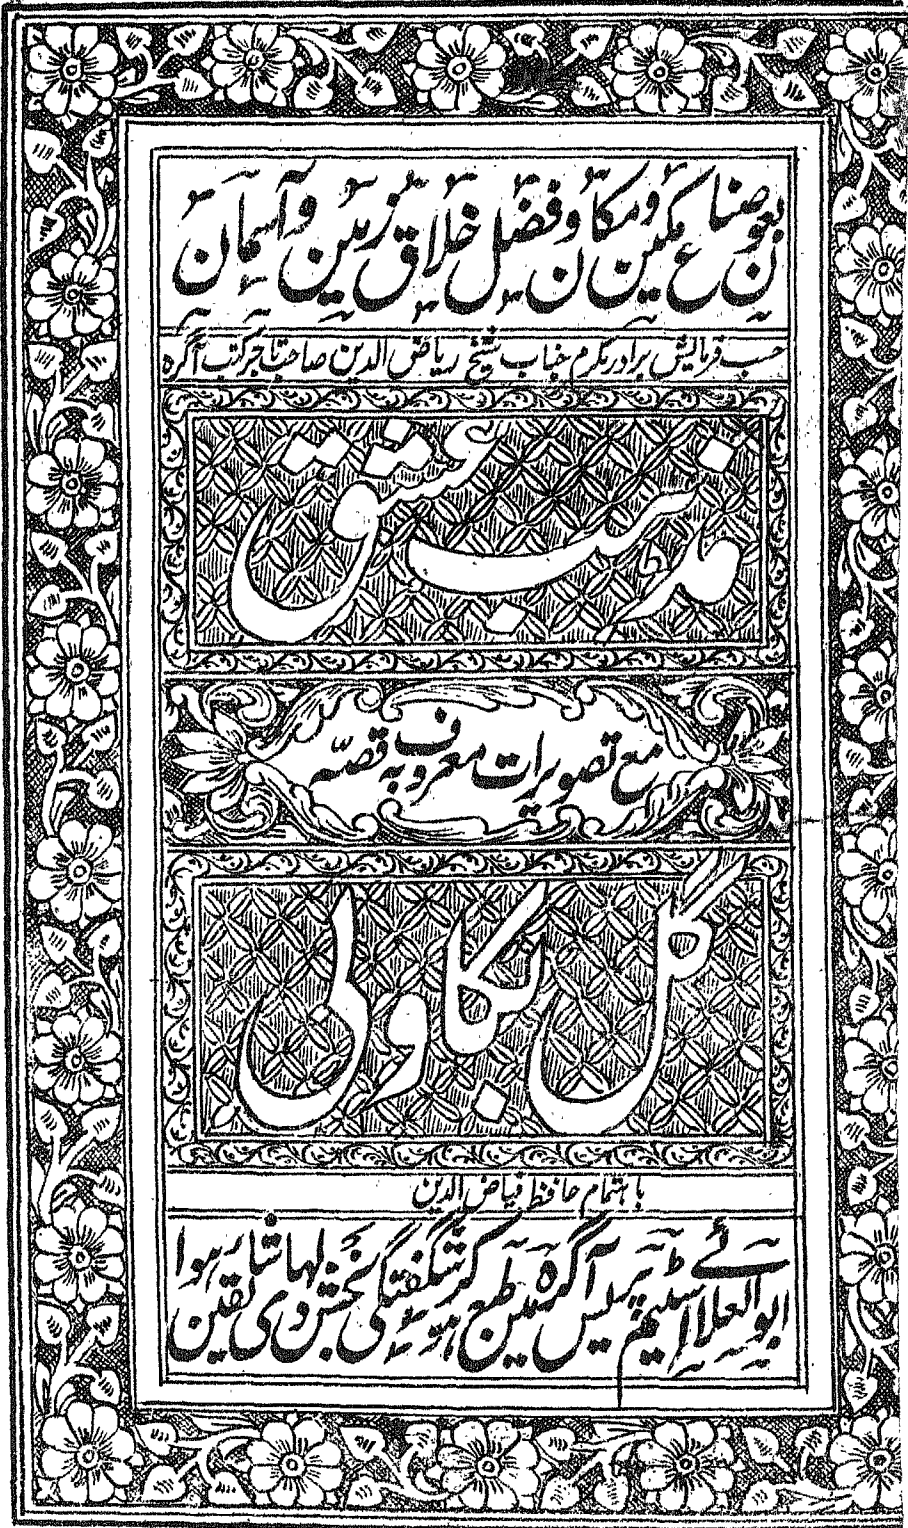 بعون صناع مکین و مکان و فضل خلاق زمین و آسمان
حسب فرمایش برادر مکرم جناب شیخ ریاض الدین صاحب تاجر کتب آگرہ
مذہب عشق
مع تصویرات معروف بہ قصّہ
گل بکاولی
باہتمام حافظ فیاض الدین
ابوالعلائی اسٹیم پریس آگرہ میں طبع ہو کر شگفتگی بخش